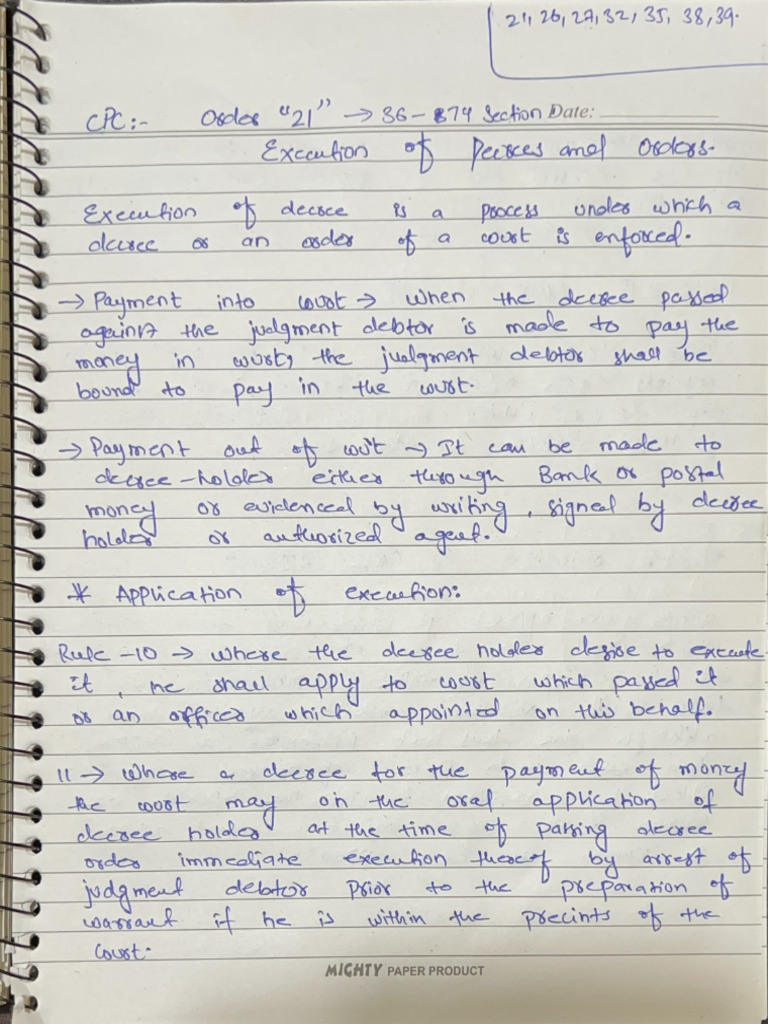 21, 26, 27, 32, 35, 38, 39.
CPC:- Order "21" → 36-74 Section Date:
Execution of Decrees and Orders.
Execution of decree is a process under which a
decree or an order of a court is enforced.
→ Payment into court → When the decree passed
against the judgment debtor is made to pay the
money in court, the judgment debtor shall be
bound to pay in the court.
→ Payment out of court → It can be made to
decree-holder either through Bank or postal
money or evidenced by writing, signed by decree
holder or authorized agent.
* Application of execution:
Rule-10 → where the decree holder desire to execute
it, he shall apply to court which passed it
or an officer which appointed on this behalf.
11 → Where a decree for the payment of money
the court may on the oral application of
decree holder at the time of passing decree
order immediate execution thereof by arrest of
judgment debtor prior to the preparation of
warrant if he is within the precints of the
Court.
MIGHTY PAPER PRODUCT